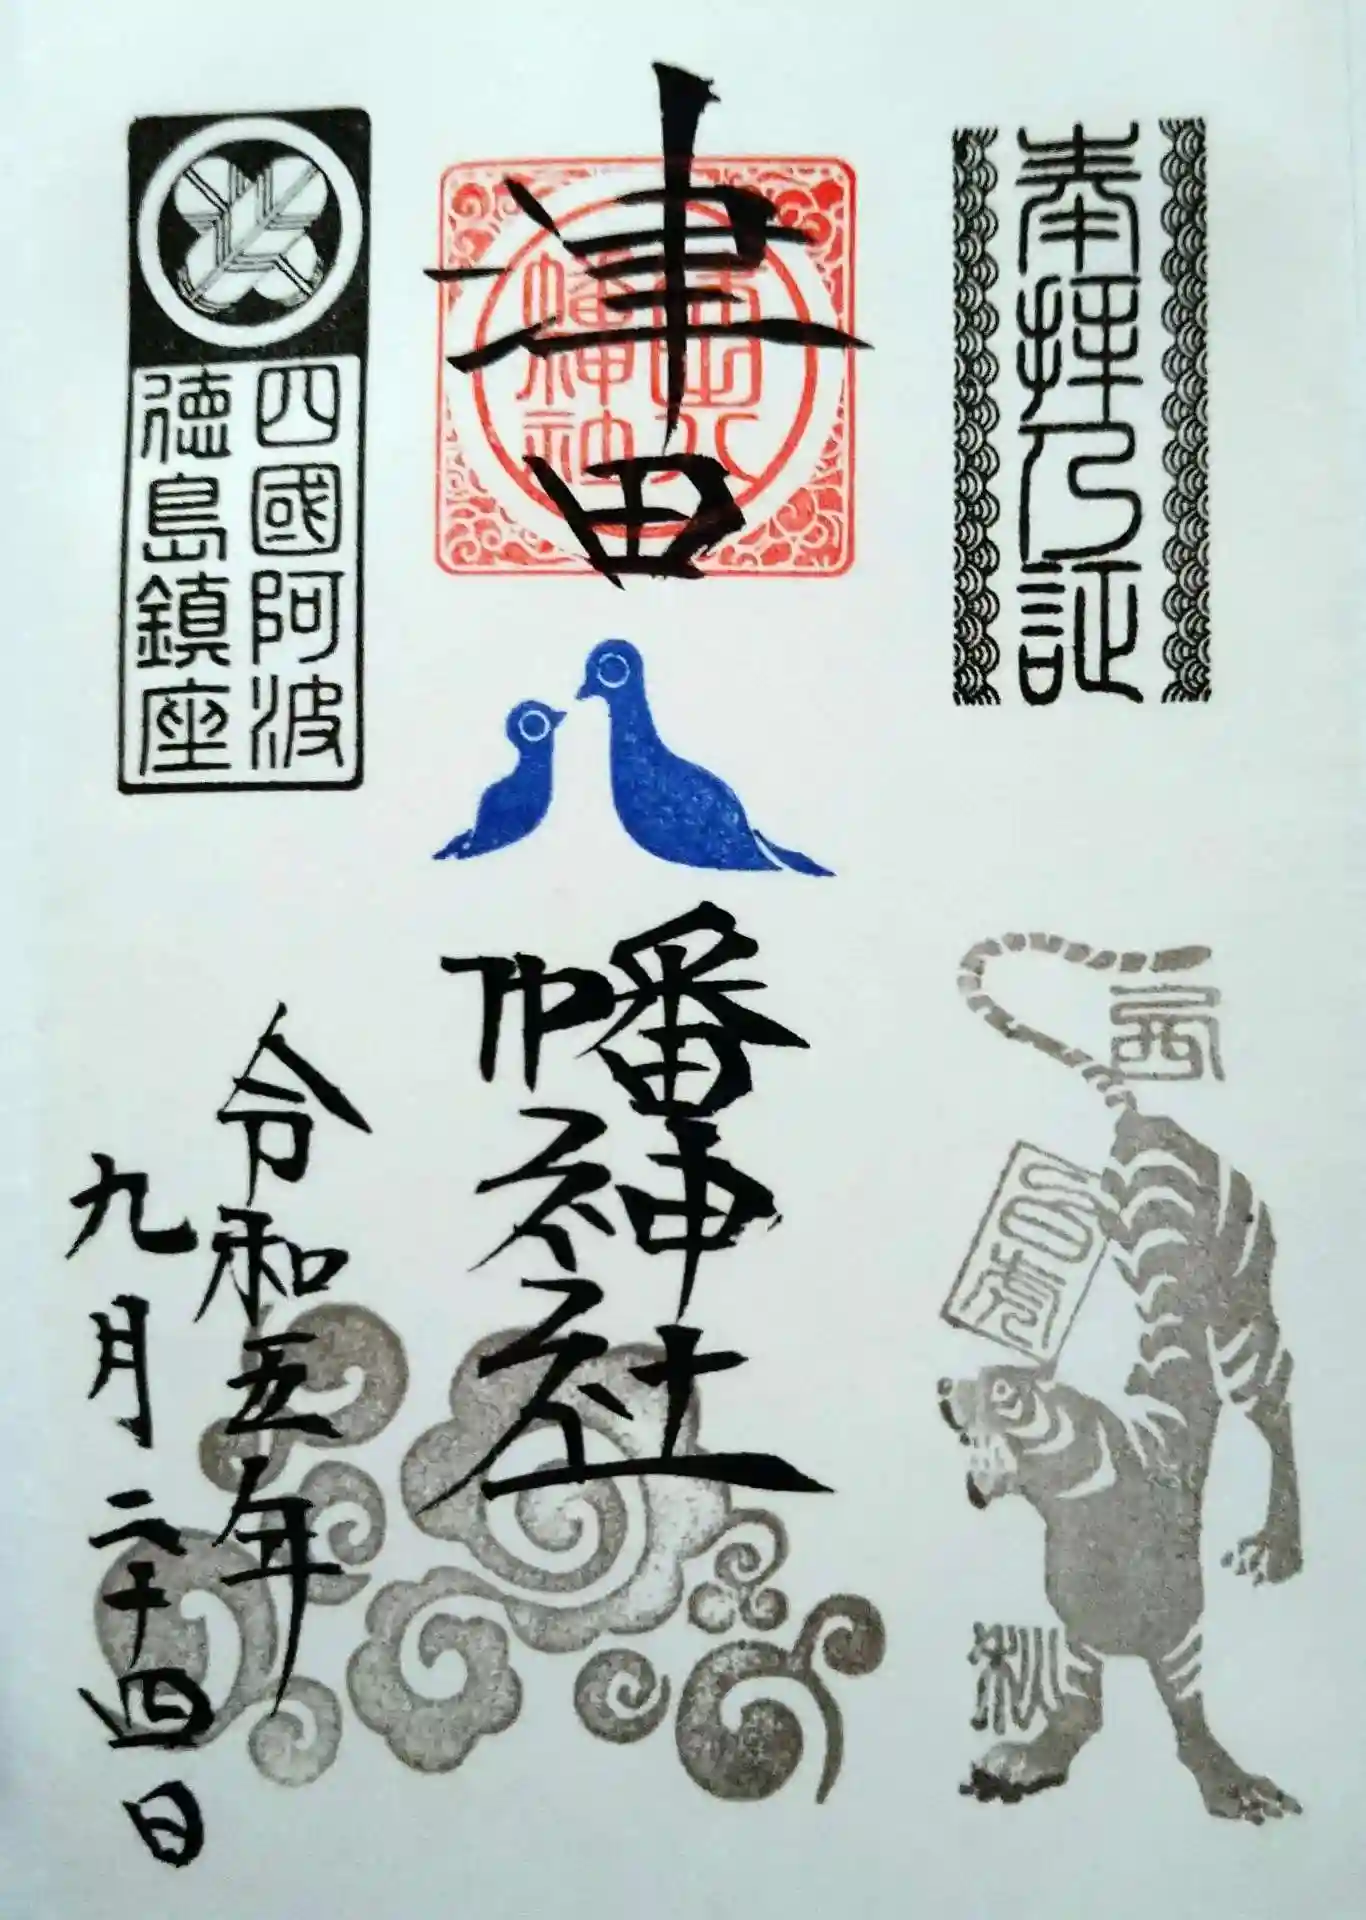 奉拝之証
西
白虎
秋
津田八幡神社
津田八
幡神社
四國阿波
徳島鎮座
令和五年
九月二十四日